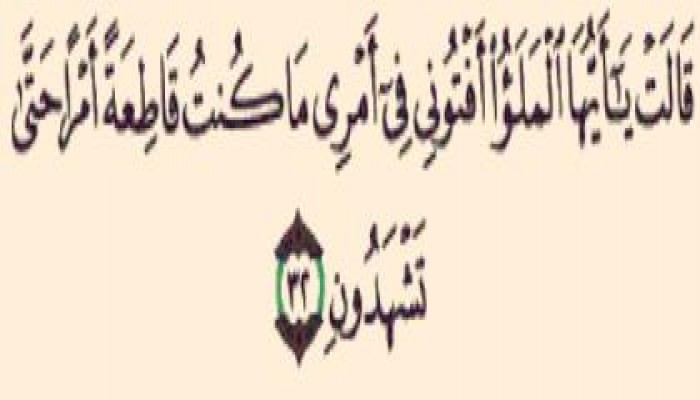 قَالَتْ يَـٰٓأَيُّهَا ٱلْمَلَؤُا۟ أَفْتُونِى فِىٓ أَمْرِى مَا كُنتُ قَاطِعَةً أَمْرًا حَتَّىٰ
تَشْهَدُونِ ٣٢